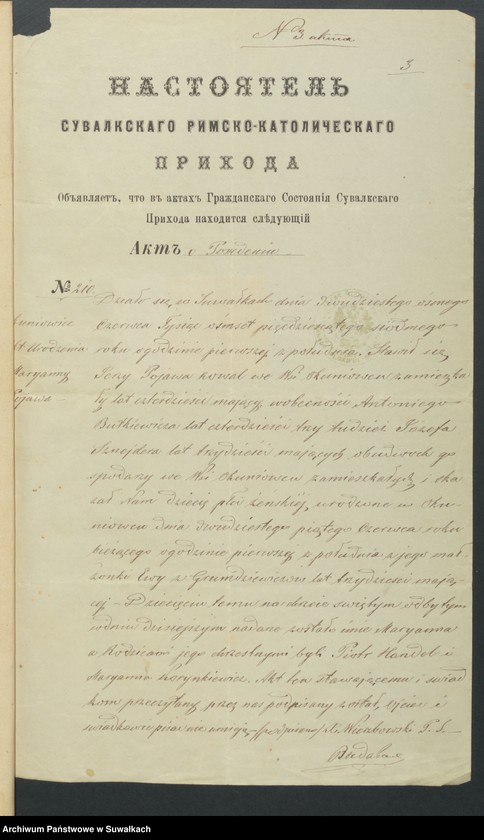 N 3 акта
3
НАСТОЯТЕЛЬ
СУВАЛКСКАГО РИМСКО-КАТОЛИЧЕСКАГО
ПРИХОДА
Объявляетъ, что въ актахъ Гражданскаго Состоянія Сувалкскаго
Прихода находится слѣдующій
Актъ о Рожденіи
№ 210.
Działo się w Suwałkach dnia dwudziestego osmego
Czerwca Tysiąc ośmset pięćdziesiątego siódmego
roku ogodzinie pierwszej z południa. Stawił się
Jerzy Pojawa kowal we Wsi Okuniowcu zamieszka
ły lat czterdzieści mający, wobecności Antoniego
Butkiewicza lat czterdzieści trzy tudzież Józefa
Sznejdera lat trzydzieści mających obudwoch go
spodarzy we Wsi Okuniowcu zamieszkałych i oka
zał Nam dziecię płci żeńskiej, urodzone w Oku
niowcu dnia dwudziestego piątego Czerwca roku
bieżącego ogodzinie pierwszej z południa z jego mał
żonki Ewy z lat trzydzieści mają
cej – Dziecięciu temu na chrzcie świętym odbytym
wdniu dzisiejszym nadane zostało imie Maryanna
a Rodzicami jego chrzestnymi byli Piotr Handel i
Maryanna Korynkiewicz. Akt ten stawającemu i świad
kom przeczytany, przez nas podpisany został, ojciec i
świadkowie pisać nie umieją – /podpisano/
Okuniowiec
Akt Urodzenia
Maryanny
Pojawa
Archiwum Państwowe w Suwałkach